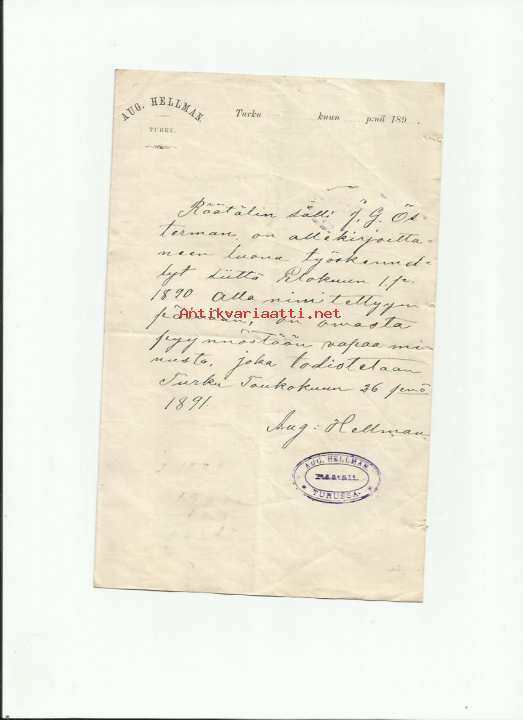 AUG. HELLMAN.
TURKU.
Turku kuun p:nä 189 .
Räätälin sälli J. G. Ös-
terman, on allekirjoitta-
neen luona työskennel-
lyt siittä Elokuun 1 p.
1890 alla nimitettyyn
päivään, on omasta
pyynnöstään vapaa mi-
nusta, joka todistetaan
Turku Toukokuun 26 p:nä
1891
Aug: Hellman
AUG. HELLMAN
TURUSSA.
Antikvariaatti.net